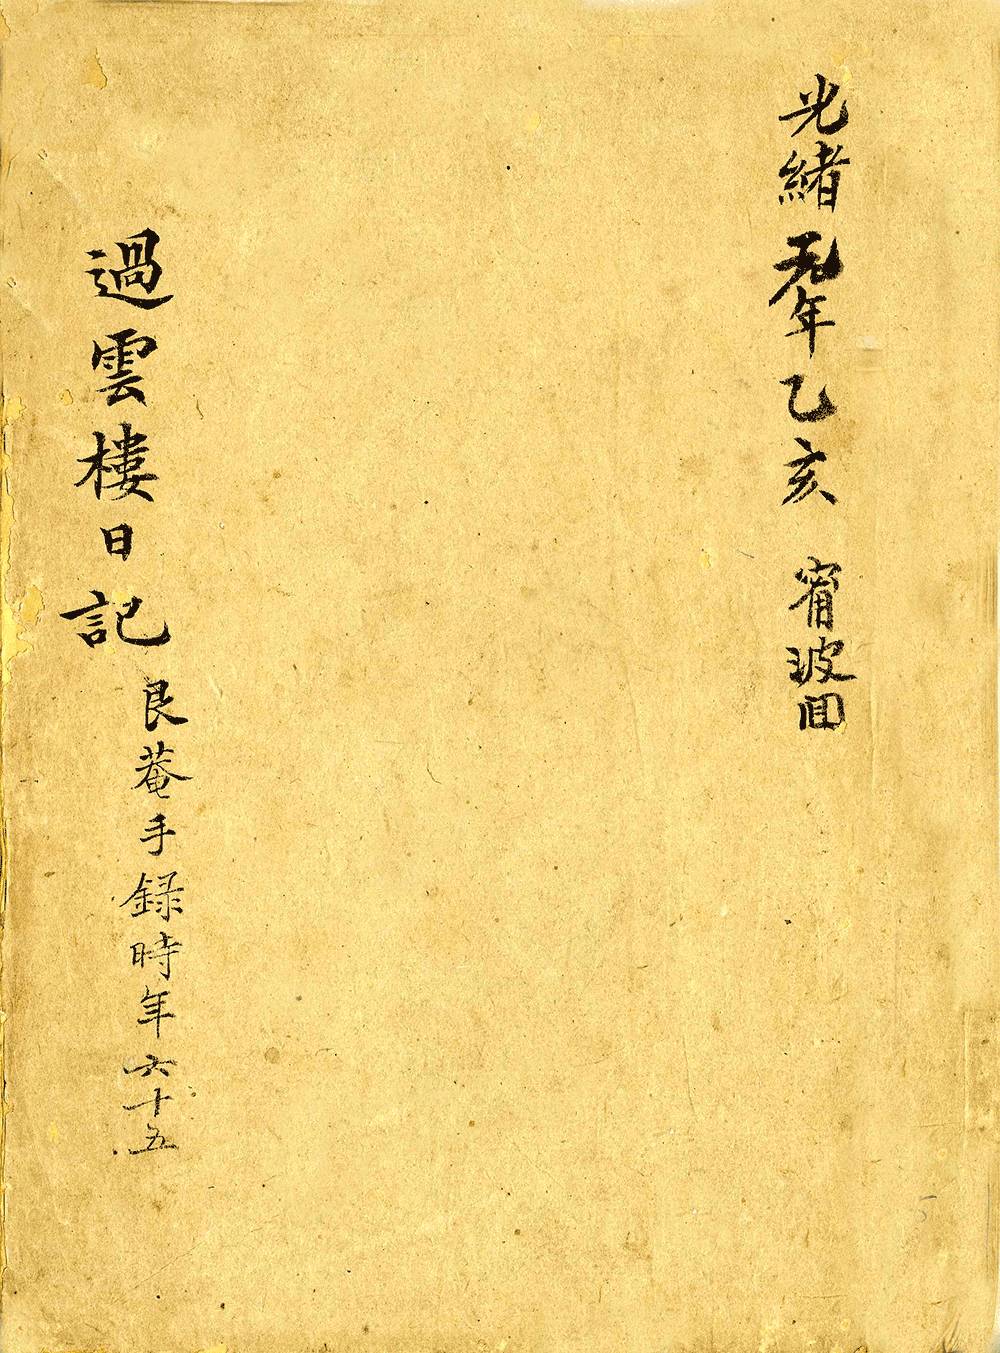 光緒元年乙亥 甯波回
過雲樓日記
艮菴手錄時年六十五